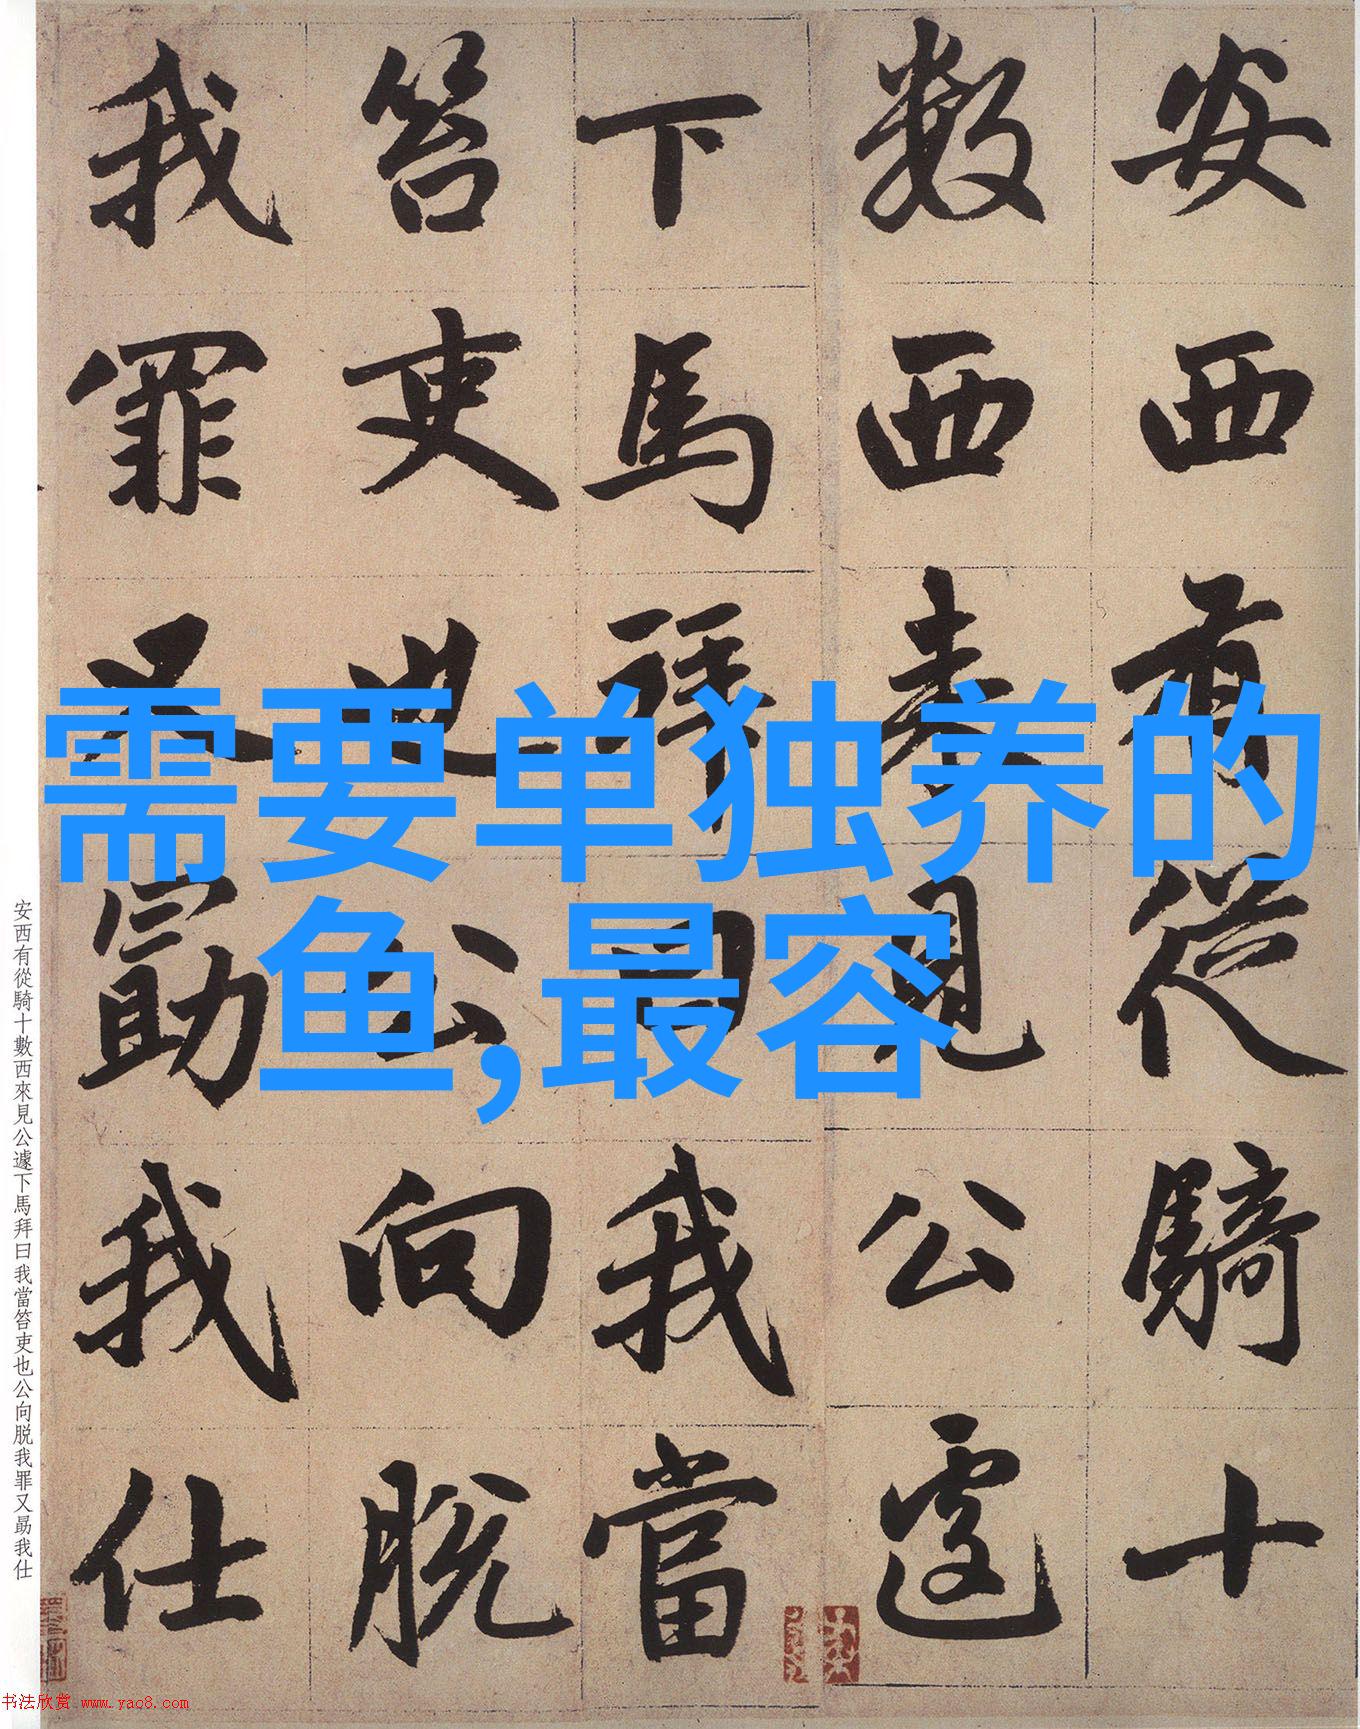 安西有從騎十
數西來見公遽
下馬拜曰我當
笞吏也公向脱
我罪又勗我仕
需要单独养的
鱼,最容
安西有從騎十數西來見公遽下馬拜曰我當笞吏也公向脱我罪又勗我仕
书法欣赏 www.yac8.com